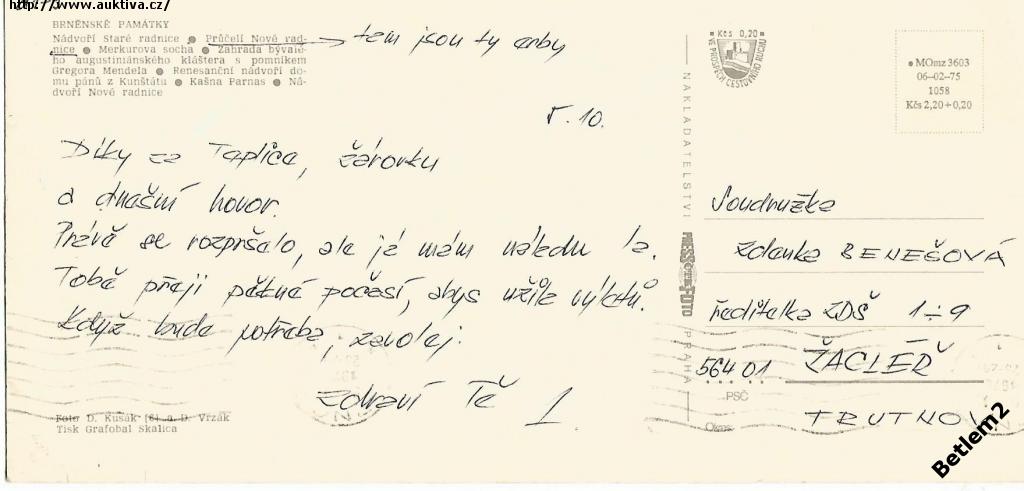 http://www.auktiva.cz/
BRNĚNSKÉ PAMÁTKY
Nádvoří Staré radnice ● Průčelí Nové rad-
nice ● Merkurova socha ● Zahrada bývalé-
ho augustiniánského kláštera s pomníkem
Gregora Mendela ● Renesanční nádvoří do-
mu pánů z Kunštátu ● Kašna Parnas ● Ná-
dvoří Nové radnice
tam jsou ty erby
10.
Díky za Taplica, žárovku
a dnašní hovor.
Právě se rozpršalo, ale já mám náladu Ia.
Tobě přeji pěkné počasí, abys užila výletů.
Když bude potřeba, zavolej.
Zdraví Tě
Foto D. Kusák [6] a D. Vrzák
Tisk Grafobal Skalica
NAKLADATELSTVÍ
PRESSFOTO
PRAHA
Kčs 0,20
VE PROSPĚCH CESTOVNÍHO RUCHU
MOmz 3603
06-02-75
1058
Kčs 2,20+0,20
Soudružka
Zdenka BENEŠOVÁ
ředitelka ZDŠ 1÷9
564 01 ŽACLÉŘ
PSČ
TRUTNOV
Okres
Betlem2